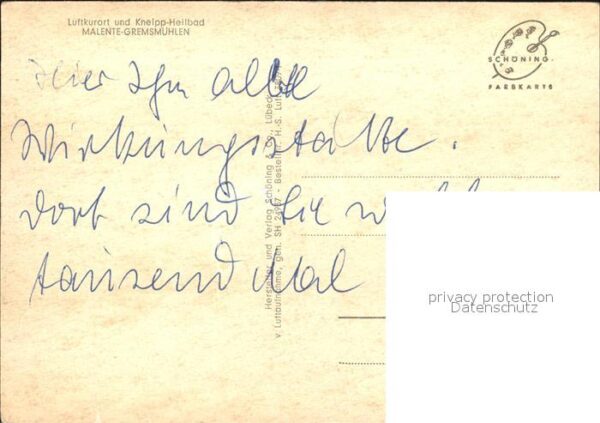 Luftkurort und Kneipp-Heilbad
MALENTE-GREMSMÜHLEN
SCHÖNING
FARBKARTE
Hier Ihr alte
Wirkungsstätte.
Dort sind Sie
tausend Mal
Hersteller und Verlag Schöning & Co., Lübeck
v. Luftaufnahme, gen. SH 24967 - Bestell
privacy protection
Datenschutz